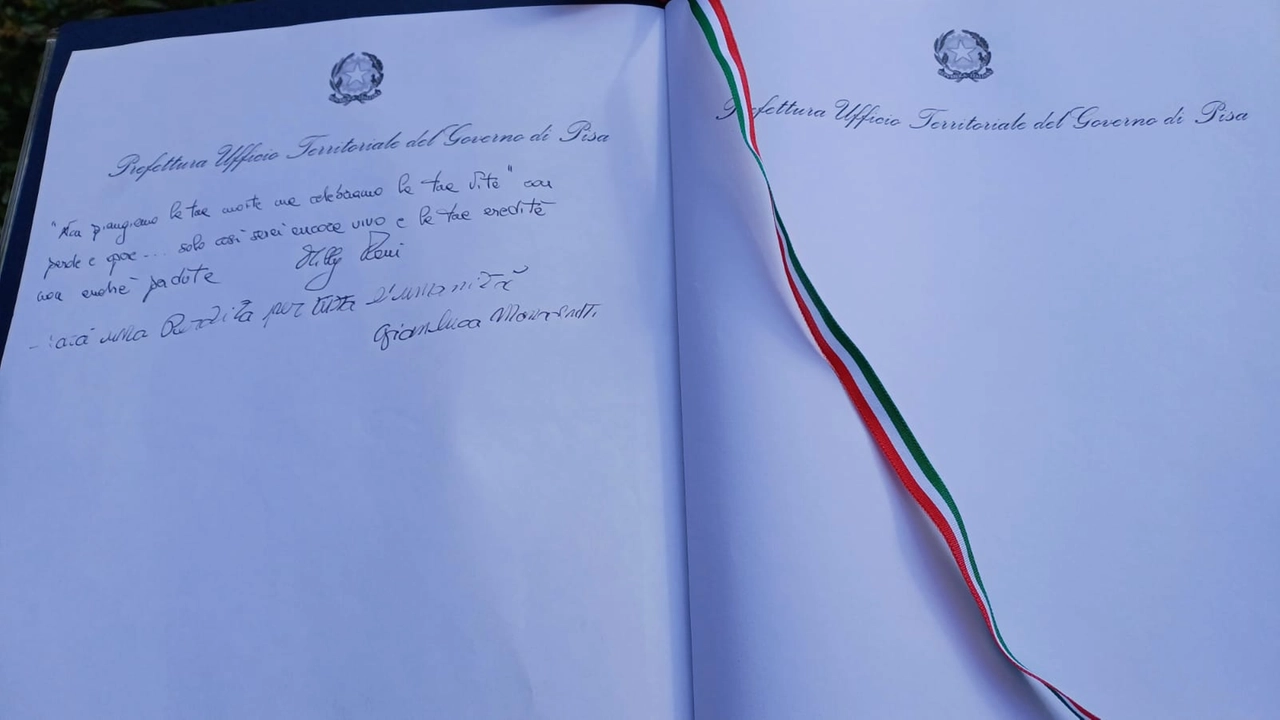 Prefettura Ufficio Territoriale del Governo di Pisa
"Non piangiamo la tua morte ma celebriamo la tua vita" con
solo così sarai ancora vivo e la tua eredità
non andrà perduta
una Perdita per tutta l'umanità
Gianluca
Prefettura Ufficio Territoriale del Governo di Pisa